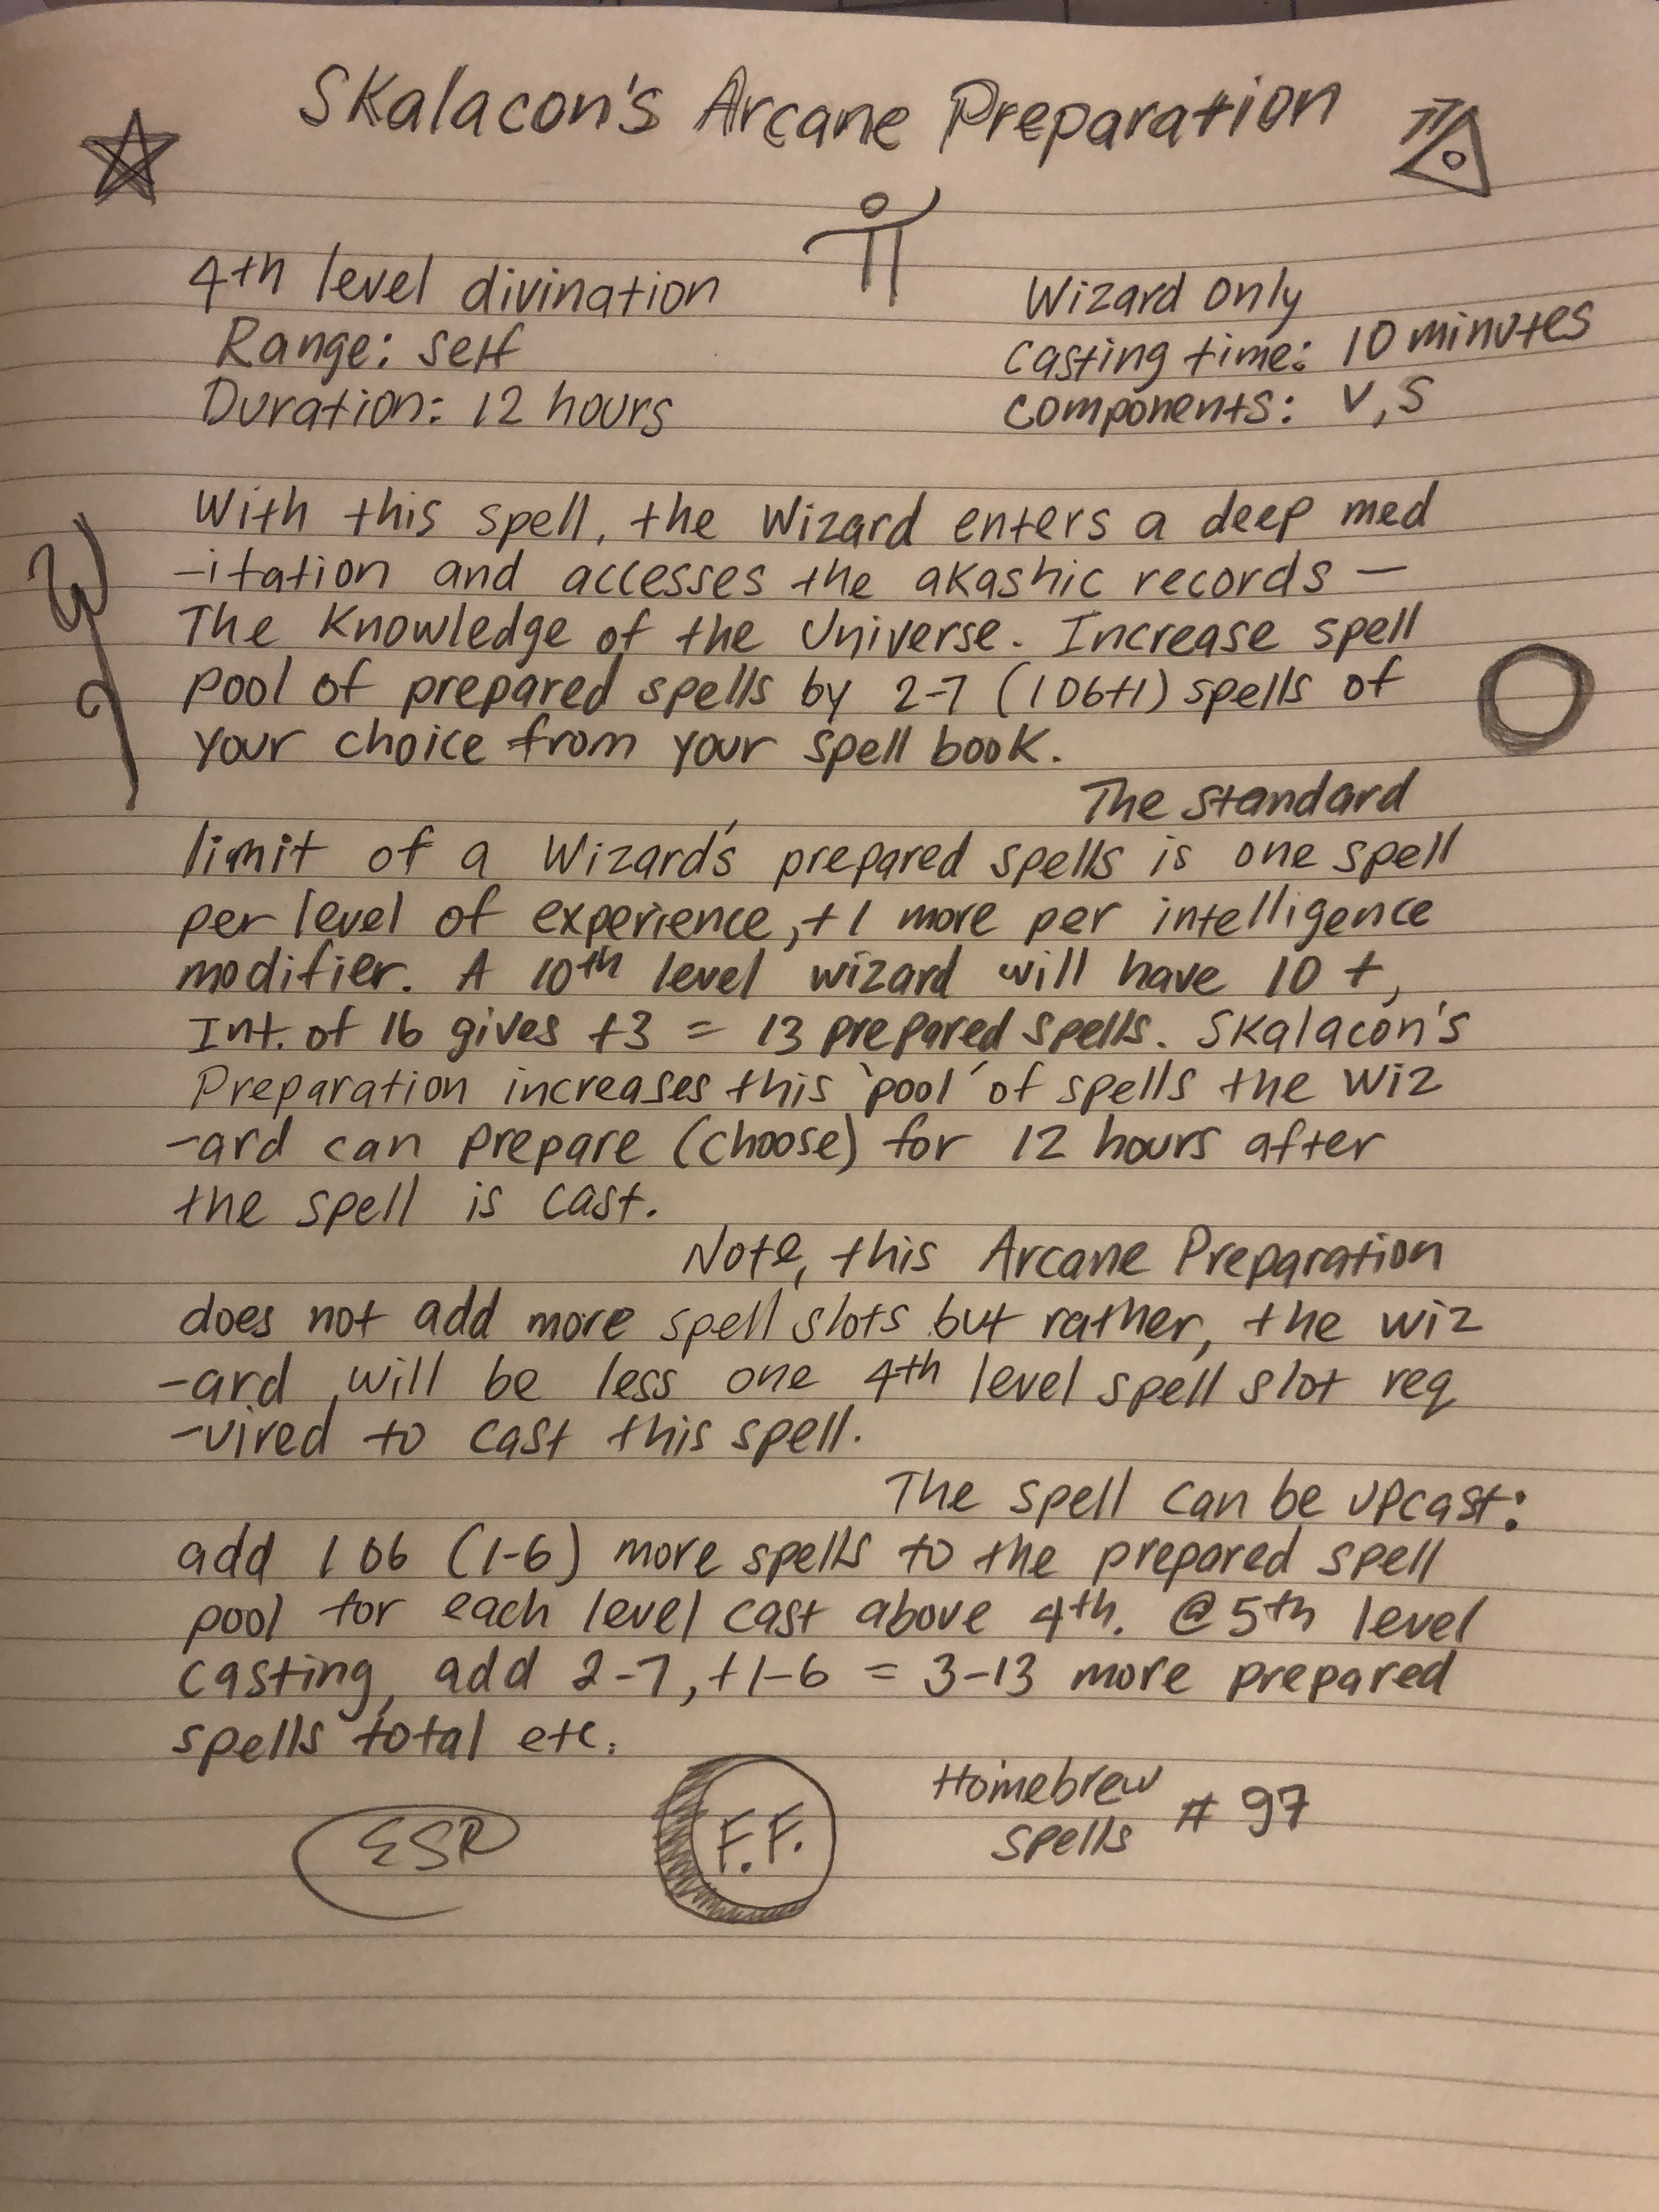 Skalacon's Arcane Preparation
4th level divination
Wizard only
Range: self
Casting time: 10 minutes
Duration: 12 hours
Components: V, S
With this spell, the Wizard enters a deep med
-itation and accesses the akashic records —
The Knowledge of the Universe. Increase spell
pool of prepared spells by 2-7 (1D6+1) spells of
your choice from your spell book.
The standard
limit of a Wizard's prepared spells is one spell
per level of experience, +1 more per intelligence
modifier. A 10th level wizard will have 10 +,
Int. of 16 gives +3 = 13 prepared spells. Skalacon's
Preparation increases this 'pool' of spells the wiz
-ard can prepare (choose) for 12 hours after
the spell is cast.
Note, this Arcane Preparation
does not add more spell slots but rather, the wiz
-ard will be less one 4th level spell slot req
-uired to cast this spell.
The spell can be upcast:
add 1D6 (1-6) more spells to the prepared spell
pool for each level cast above 4th. @ 5th level
casting, add 2-7, +1-6 = 3-13 more prepared
spells total etc.
ESR
F.F.
Homebrew
spells # 97